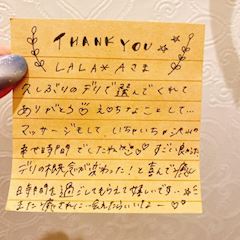 THANK YOU
LALA*Aさま
久しぶりのデリで選んでくれて
ありがとう えちなことして...
マッサージもして、いちゃいちゃ沢山の
幸せ時間でしたね♡ すごい良かった
デリの概念が変わった!と喜んで癒し
時間を過ごしてもらえて嬉しいです..
また癒されに..会えたらいいなー ♡♡